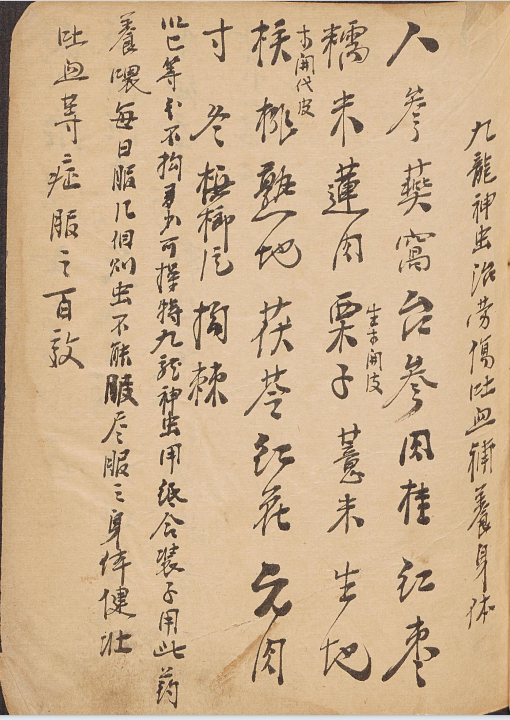 九龍神虫治劳傷吐血補養身体
人參 燕窩 台參 肉桂 红枣
糯米 蓮肉 栗子 生不開皮 薏米 生地
核桃 不開代皮 熟地 茯苓 红花 元肉
寸冬 枸杞
以上等分不拘多少可搽特九龍神虫用纸合装子用此药
養喂每日服几個则虫不能服尽服之身体健壮
吐血等症服之百效